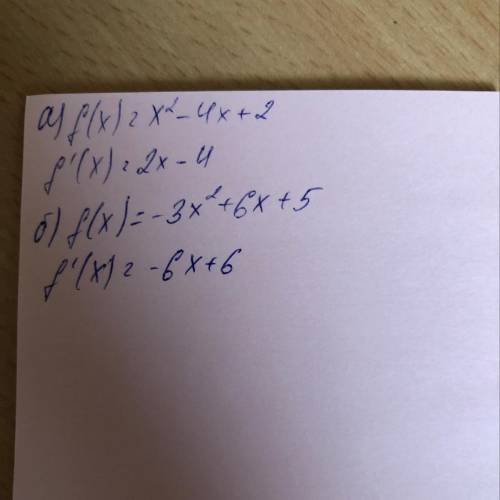 а) f(x) = x² - 4x + 2
f'(x) = 2x - 4
б) f(x) = -3x² + 6x + 5
f'(x) = -6x + 6